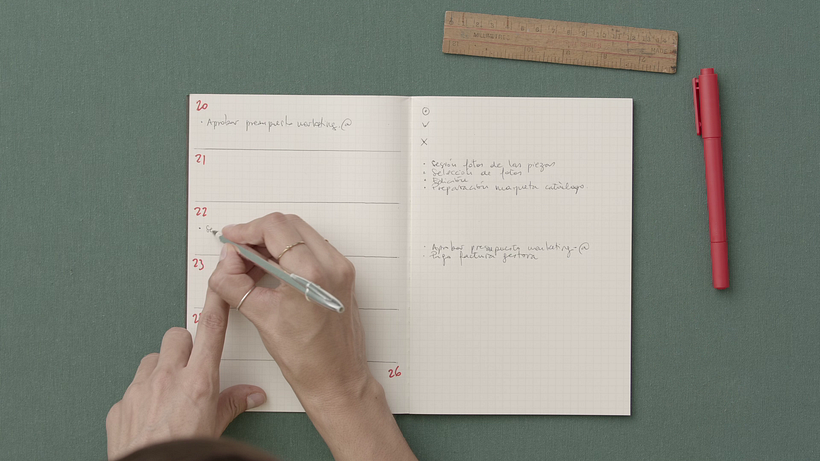 20
· Aprobar presupuesto marketing. @
21
22
· Se
23
26
· Sesión fotos de las piezas
· Selección de fotos
· Edición
· Preparación maqueta catálogo
· Aprobar presupuesto marketing. @
· Paga factura gestora